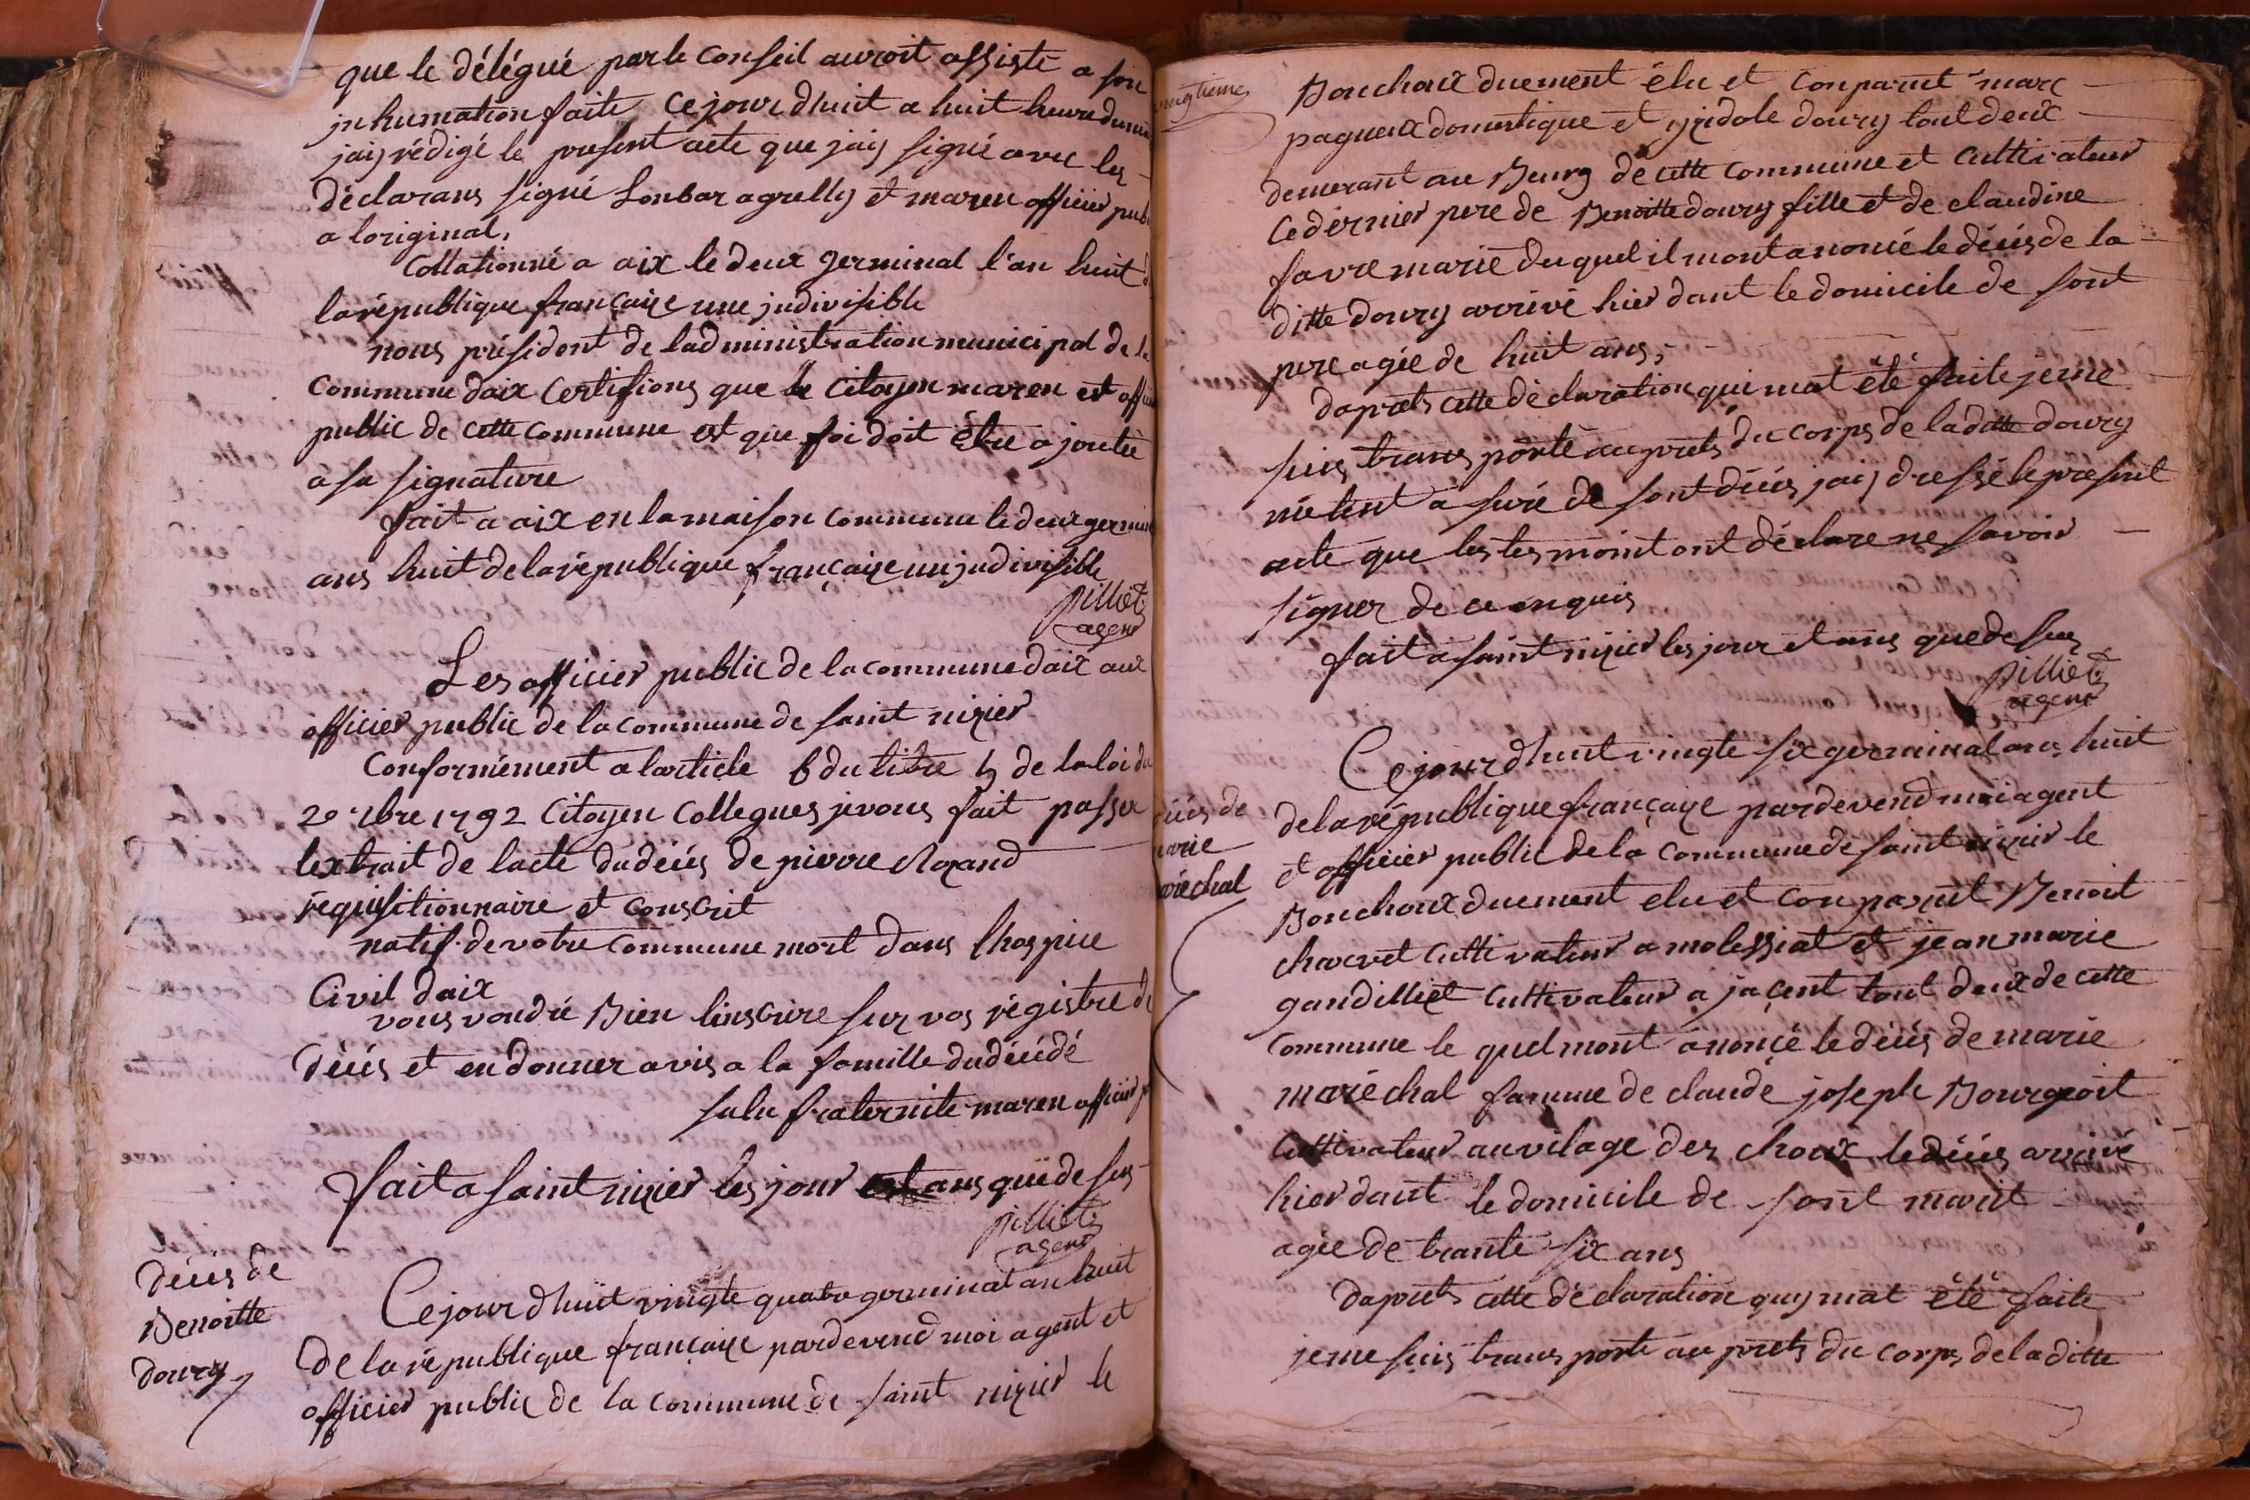 que le délégué par le conseil auroit assisté a son
inhumation faite ce jour dhuit a huit heure du
jaiy rédigé le présent acte que jaiy signé avec les
déclarans signé Lonbar agrelly et maren officier pub
a loriginal,
Collationné a aix le deux germinal l'an huit d
la république françaize une judivisible
nous président de ladministration municipal de la
Commune daix Certifions que le Citoyen maren est
public de cette commune est que foi doit être ajoutée
a sa signature
fait a aix en la maison commune le deux
ans huit de la république françaize judivisible
pilliet
agent
Les officier public de la commune daix aux
officier public de la commune de saint nizier
Conformément a larticle 6 du titre 5 de la loi du
20 7bre 1792 Citoyen Collegues je vous fait passer
lextrait de lacte du déces de pierre Rozand
réquisitionnaire et conscrit
natif de votre commune mort dans lhospice
Civil daix
vous voudré Bien linscrire sur vos régistre de
Déces et en donner avis a la famille du décédé
salu fraternite maren officier
fait a saint nizier les jour et ans que de sus
pilliet
agent
Déces de
Benoitte
doury
Ce jour dhuit vingte quatre germinal an huit
de la république françaize pardevend moi agent et
officier public de la commune de saint nizier le
Bouchoux duement élu et conparut marc
pagueux domestique et doury tout deux
demerant au Bourg de cette commune et cultivateur
ce dernier pere de Benoitte doury fille et de claudine
favre marié duquel il mont anoncé le déces de la
ditte doury arrivé hier dant le domicile de sont
pere agée de huit ans,
daprets cette déclaration qui mat été faite jeme
suis transporté auprets du corps de la ditte doury
métent asuré de sont déces jaiy dressé le présent
acte que les tesmoint ont déclare ne savoir
signer de ce enquis
fait a saint nizier les jour et ans que de sus
pilliet
agent
déces de
marie
maréchal
Ce jour dhuit vingte six germinal ans huit
de la république françaize pardevend moi agent
et officier public de la commune de saint nizier le
Bouchoux duement elu et conparut Benoit
charvet cultivateur a molessiat et jean marie
gandilliet cultivateur a jaçent tout deux de cette
commune le quel mont anoncé le déces de marie
maréchal famme de claude joseph Bourgeoit
cultivateur au vilage des choux le déces arrivé
hier dant le domicile de sont marit
agée de trante six ans
daprets cette déclaration quy mat été faite
jeme suis transporté au prets du corps de la ditte